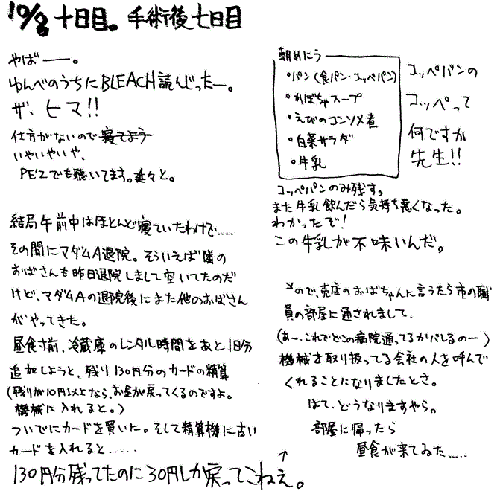 10/8 十日目。手術後七日目
やばーー。
ゆんべのうちにBLEACH読んじったー。
ザ、ヒマ!!
仕方がないので寝てまう
いやいやいや、
PE'Zでも聴いてます。延々と。
結局午前中はほとんど寝ていたわけで……
その間にマダムA退院。そういえば隣の
おばさんも昨日退院しまして空いてたのだ
けど、マダムAの退院後にまた他のおばさん
がやってきた。
昼食寸前、冷蔵庫のレンタル時間をあと1日分
追加しようと、残り130円分のカードの精算
(残りが10円以上なら、お金が戻ってくるのですよ。
機械に入れると。)
ついでにカードを買いた。そして精算機に古い
カードを入れると……
130円分残ってたのに30円しか戻ってこねぇ。
朝めにう
・パン(食パン・コッペパン)
・かぼちゃスープ
・えびのコンソメ煮
・白菜サラダ
・牛乳
コッペパンの
コッペって
何ですか
先生!!
コッペパンのみ残す。
また牛乳飲んだら気持ち悪くなった。
わかったぞ!
この牛乳が不味いんだ。
↑
ので、売店のおばちゃんに言うたら市の職
員の部屋に通されまして、
(あー、これでどこの病院通ってるかバレるのー)
機械を取り扱ってる会社の人を呼んで
くれることになりましたとさ。
はて、どうなりますやら。
部屋に帰ったら
昼食が来てみた……